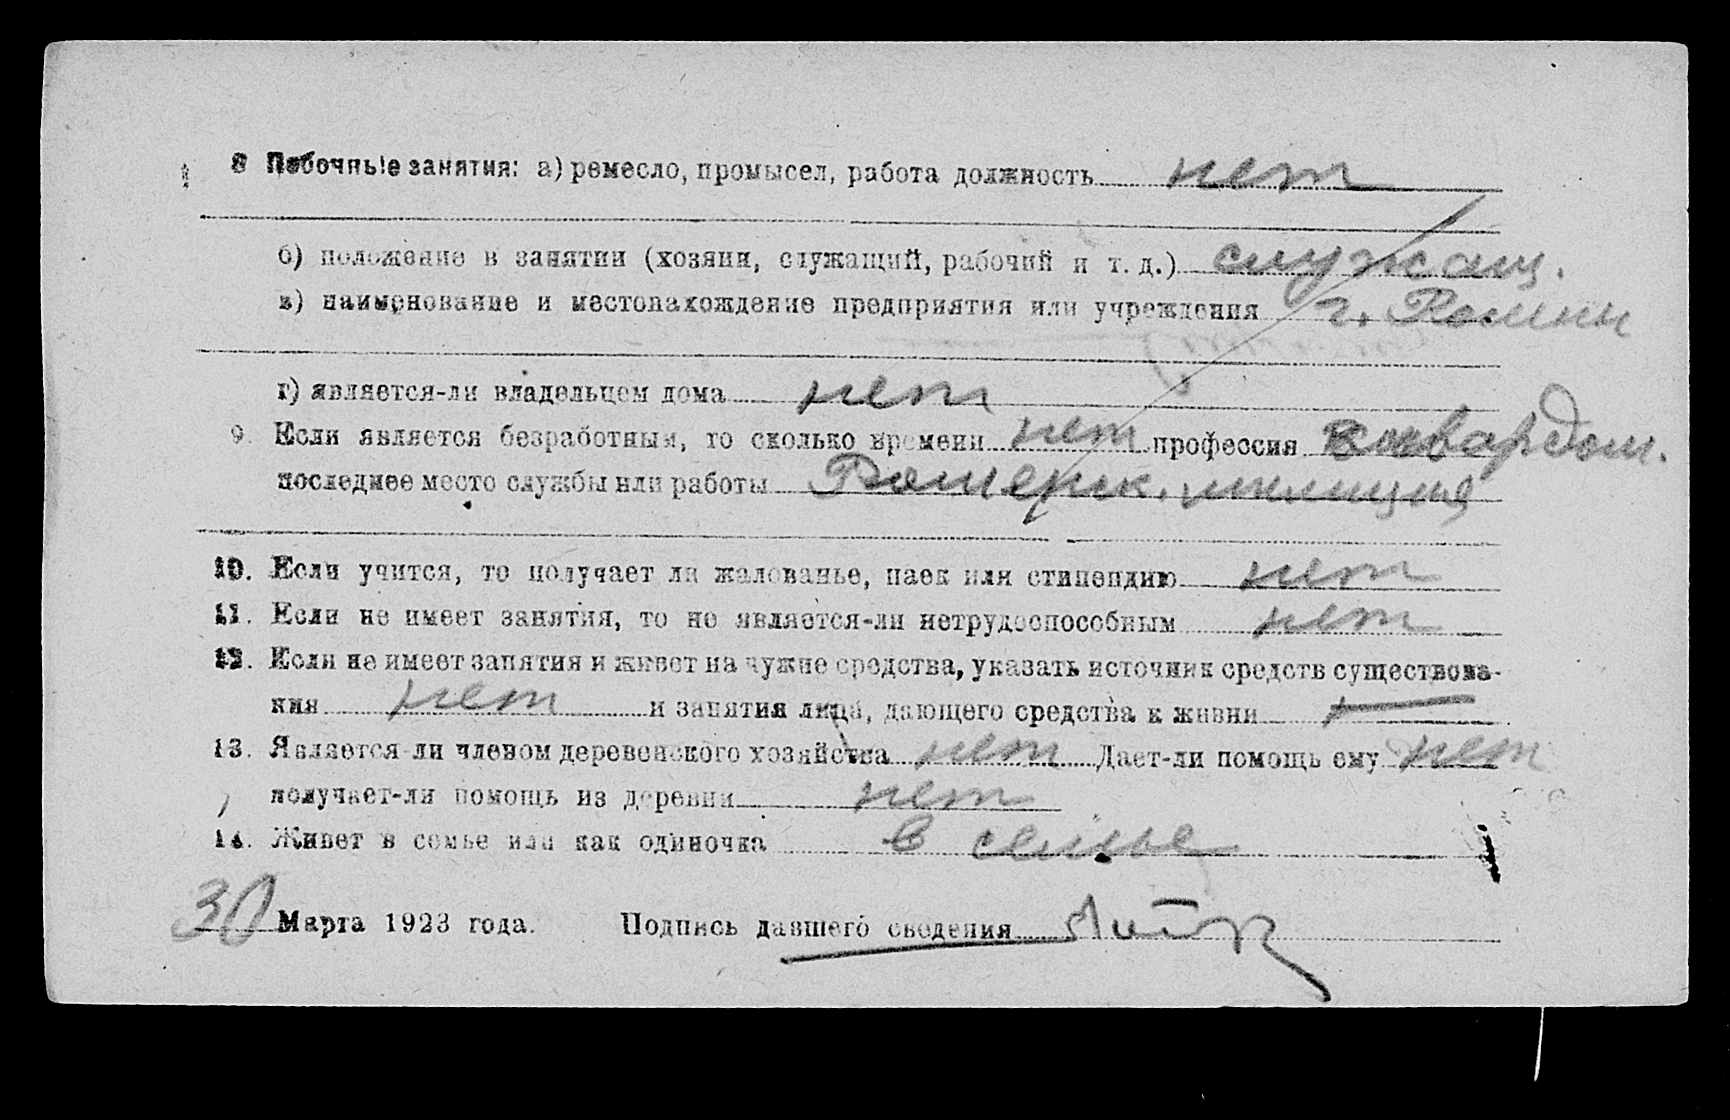 8 Побочные занятия: а) ремесло, промысел, работа должность нет
б) положение в занятии (хозяин, служащий, рабочий и т. д.) служащ.
в) наименование и местонахождение предприятия или учреждения г. Ромны
г) является-ли владельцем дома нет
9. Если является безработным, то сколько времени нет профессия
последнее место службы или работы милиция
10. Если учится, то получает ли жалованье, паек или стипендию нет
11. Если не имеет занятия, то не является-ли нетрудоспособным нет
12. Если не имеет занятия и живет на чужие средства, указать источник средств существова-
ния нет и занятия лица, дающего средства к жизни —
13. Является-ли членом деревенского хозяйства нет Дает-ли помощь ему нет
получает-ли помощь из деревни нет
14. Живет в семье или как одиночка в семье
30 Марта 1923 года. Подпись давшего сведения